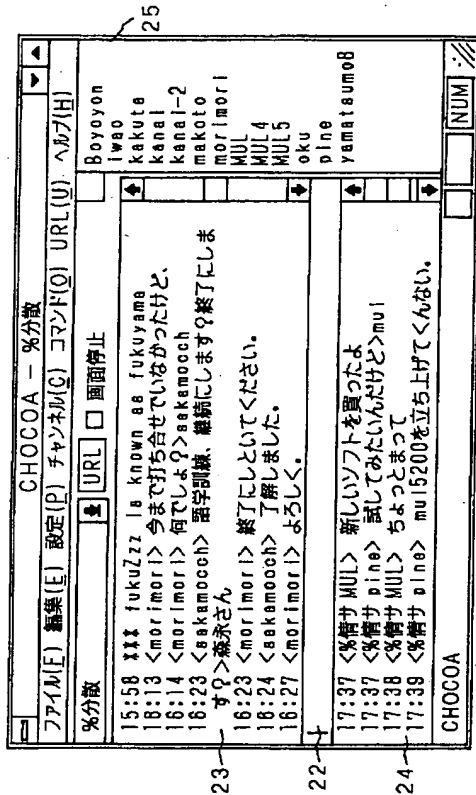 CHOCOA - %分散
ファイル(F) 編集(E) 設定(P) チャンネル(C) コマンド(O) URL(U) ヘルプ(H)
%分散
URL
画面停止
15:58 *** fukuZzz is known as fukuyama
16:13 <morimori> 今まで打ち合せでいなかったけど、
16:14 <morimori> 何でしょ?>sakamooch
16:23 <sakamooch> 語学訓練、継続にします?終了にしま
す?>森永さん
16:23 <morimori> 終了にしといてください。
16:24 <sakamooch> 了解しました。
16:27 <morimori> よろしく。
17:37 <%情サ MUL> 新しいソフトを買ったよ
17:37 <%情サ pine> 試してみたいんだけど>mul
17:38 <%情サ MUL> ちょっとまって
17:39 <%情サ pine> mul5200を立ち上げてくんない。
Boyoyon
iwao
kakuta
kanai
kanai-2
makoto
morimori
MUL
MUL4
MUL5
oku
pine
yamatsumo8
CHOCOA
NUM
23
22
24
25